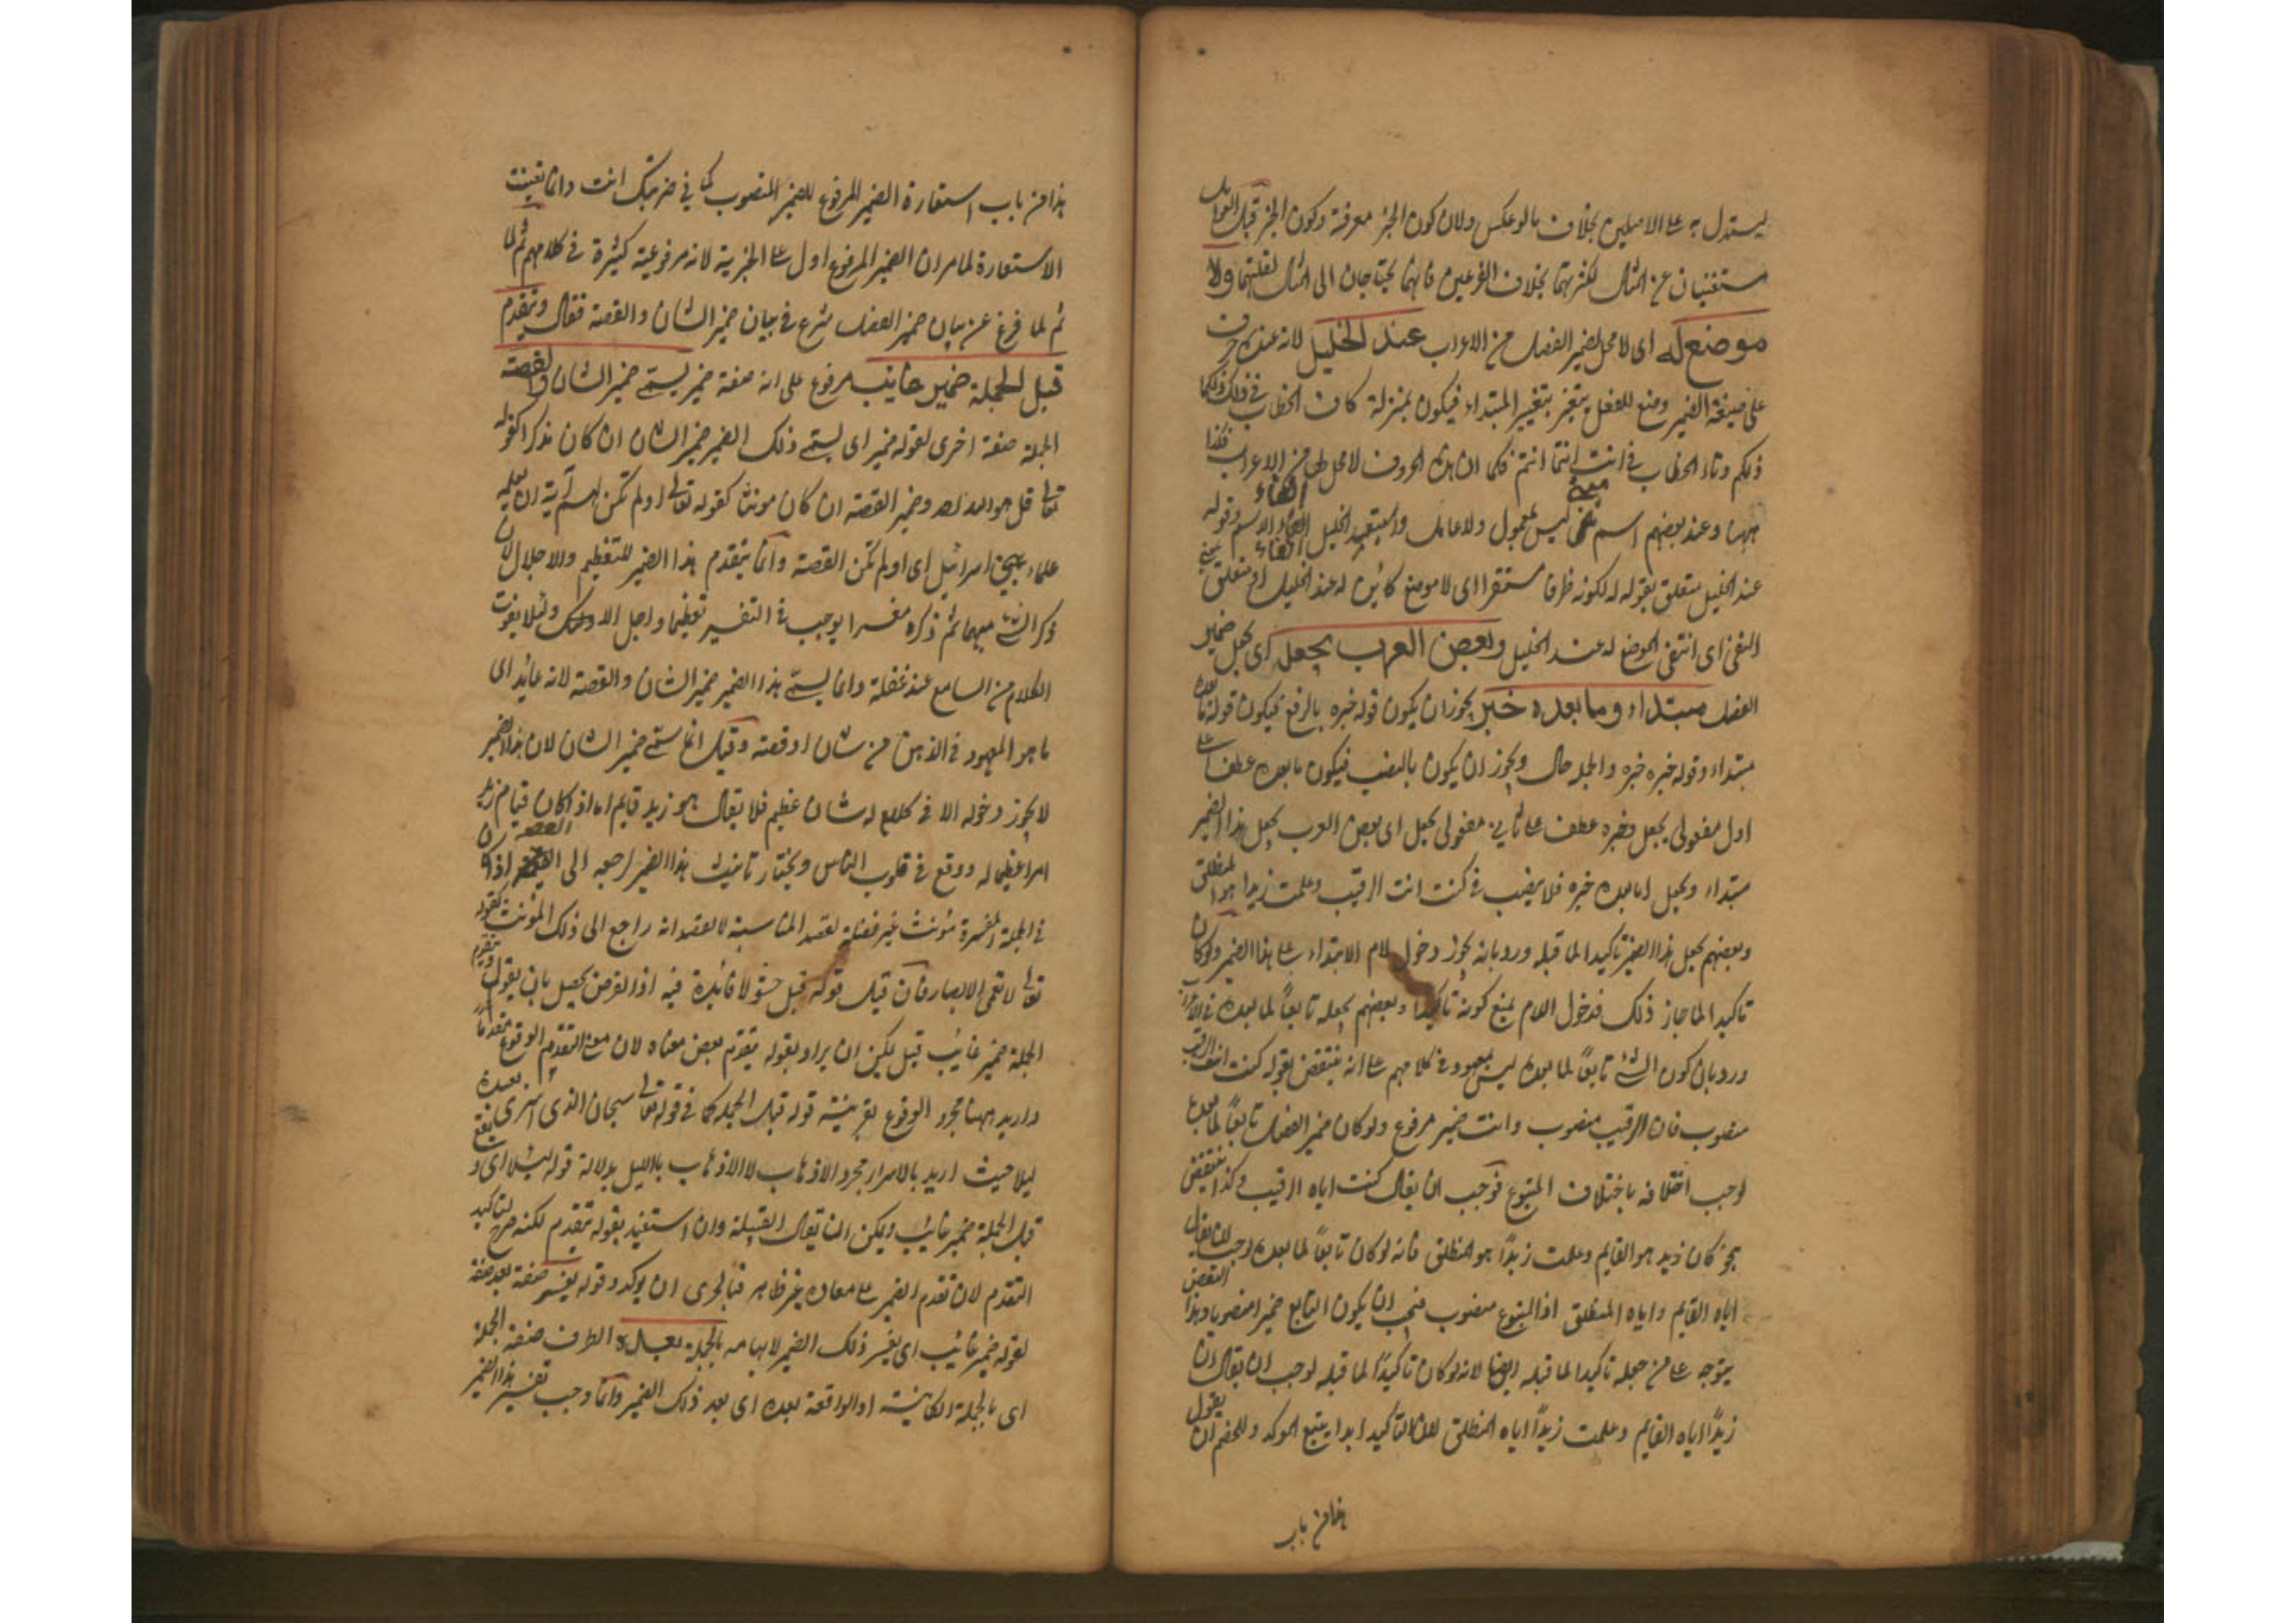 ليستدل به على الاصلين بخلاف بالوعكس ولان كون الخبر معرفة وكون الخبر قبل العوامل
مستغنيان عن المثال لكثرتهما بخلاف الفرعين فانهما يحتاجان الى المثال لقلتهما ولا
موضع له اى لا محل لضمير الفصل من الاعراب عند الخليل لانه عنده حرف
على صيغة الضمير وضع للفصل يتغير بتغيير المبتداء فيكون بمنزلة كاف الخطاب فى ذلك ذلكما
ذلكم وتاء الخطاب فى انت انتما انتم فكما ان هذه الحروف لا محل لها من الاعراب فكذا
ههنا وعند بعضهم اسم ليس بمعمول ولا عامل الخليل الغاء الاسم وقوله
عند الخليل متعلق بقوله له لكونه ظرفا مستقرا اى لا موضع كائن له عند الخليل او متعلق بمعنى
النفى اى انتفى الموضع له عند الخليل وبعض العرب يجعله اى يجعل ضمير
الفصل مبتداء وما بعده خبره يجوز ان يكون قوله خبره بالرفع فيكون قوله ما بعده
مبتداء وقوله خبره خبره والجملة حال ويجوز ان يكون بالنصب فيكون ما بعده عطف على
اول مفعولى يجعل وخبره عطف على ثانى مفعولى يجعل اى بعض العرب يجعل هذا الضمير
مبتداء ويجعل ما بعده خبره فلا ينصب فى كنت انت الرقيب وعلمت زيدا هو المنطلق
وبعضهم يجعل هذا الضمير تاكيدا لما قبله ورد بانه يجوز دخول لام الابتداء على هذا الضمير ولو كان
تاكيدا لما جاز ذلك فدخول اللام يمنع كونه تاكيدا وبعضهم يجعله تابعاً لما بعده فى الاعراب
ورد بان كون الشئ تابعاً لما بعده ليس بمعهود فى كلامهم على انه ينتقض بقوله كنت انت الرقيب
منصوب فان الرقيب منصوب وانت ضمير مرفوع ولو كان ضمير الفصل تابعاً لما بعده
لوجب اختلافه باختلاف المتبوع فوجب ان يقال كنت اياه الرقيب وكذا ينتقض
بنحو كان زيد هو القايم وعلمت زيداً هو المنطلق فانه لو كان تابعاً لما بعده لوجب ان يقال
اياه القايم واياه المنطلق اذ المتبوع منصوب فيجب ان يكون التابع ضميرا منصوبا وهذا النقض
يتوجه على من جعله تاكيدا لما قبله ايضا لانه لو كان تاكيداً لما قبله لوجب ان يقال ان
زيداً اياه القايم وعلمت زيداً اياه المنطلق لان التاكيد ابدا يتبع الموكد وللخصم ان يقول
هذا من باب
هذا من باب استعارة الضمير المرفوع للضمير المنصوب كما فى ضربتك انت وانما تعينت
الاستعارة لما مر ان الضمير المرفوع اول على الخبرية لانه مرفوعيته كثيرة فى كلامهم ثم لما
ثم لما فرغ عن بيان ضمير الفصل شرع فى بيان ضمير الشان والقصة فقال ويتقدم
قبل الجملة ضمير غايب مرفوع على انه صفة ضمير يسمى ضمير الشان والقصة
الجملة صفة اخرى لقوله ضمير اى يسمى ذلك الضمير ضمير الشان ان كان مذكرا كقوله
تعالى قل هو الله احد وضمير القصة ان كان مونثا كقوله تعالى اولم تكن لهم آية ان يعلمه
علماء بنى اسرائيل اى اولم تكن القصة وانما يتقدم هذا الضمير للتعظيم والاجلال لان
ذكر الشئ مبهما ثم ذكره مفسرا يوجب فى التفسير تعظيما ولئلا يفوت
الكلام من السامع عند غفلة وانما يسمى هذا الضمير ضمير الشان والقصة لانه عايد اى
ما هو المعهود فى الذهن من شان او قصة وقيل انما سمى ضمير الشان لان هذا الضمير
لا يجوز دخوله الا فى كلام له شان عظيم فلا يقال هو زيد قايم الا اذا كان قيام زيد
امرا عظيما له ووقع فى قلوب الناس ويختار تانيث هذا الضمير لرجعه الى القصة اذا كان
فى الجملة المفسرة مؤنث غير فضلة لقصد المناسبة لا لقصد انه راجع الى ذلك المؤنث كقوله
تعالى لا تعمى الابصار فان قيل قوله قبل حشو لا فائدة فيه اذ الغرض يحصل بان يقول ويتقدم
الجملة ضمير غائب قيل يمكن ان يراد بقوله يتقدم بعض معناه لان معنى التقدم الوقوع مقدماً
واريد ههنا مجرد الوقوع بقرينة قوله قبل الجملة كما فى قوله تعالى سبحان الذى اسرى بعبده
ليلا حيث اريد بالاسراء مجرد الاذهاب لا الاذهاب بالليل بدلالة قوله ليلا اى ويقع
قبل الجملة ضمير غائب ويمكن ان يقال القبلية وان استفيد بقوله يتقدم لكنه صرح لتاكيد
التقدم لان تقدم الضمير على معاده غير ظاهر فبالحرى ان يوكد وقوله يفسر صفة بعد صفة
لقوله ضمير غائب اى يفسر ذلك الضمير لابهامه بالجملة بعده الظرف صفة الجملة
اى بالجملة الكائنة او الواقعة بعده اى بعد ذلك الضمير وانما وجب تفسير هذا الضمير